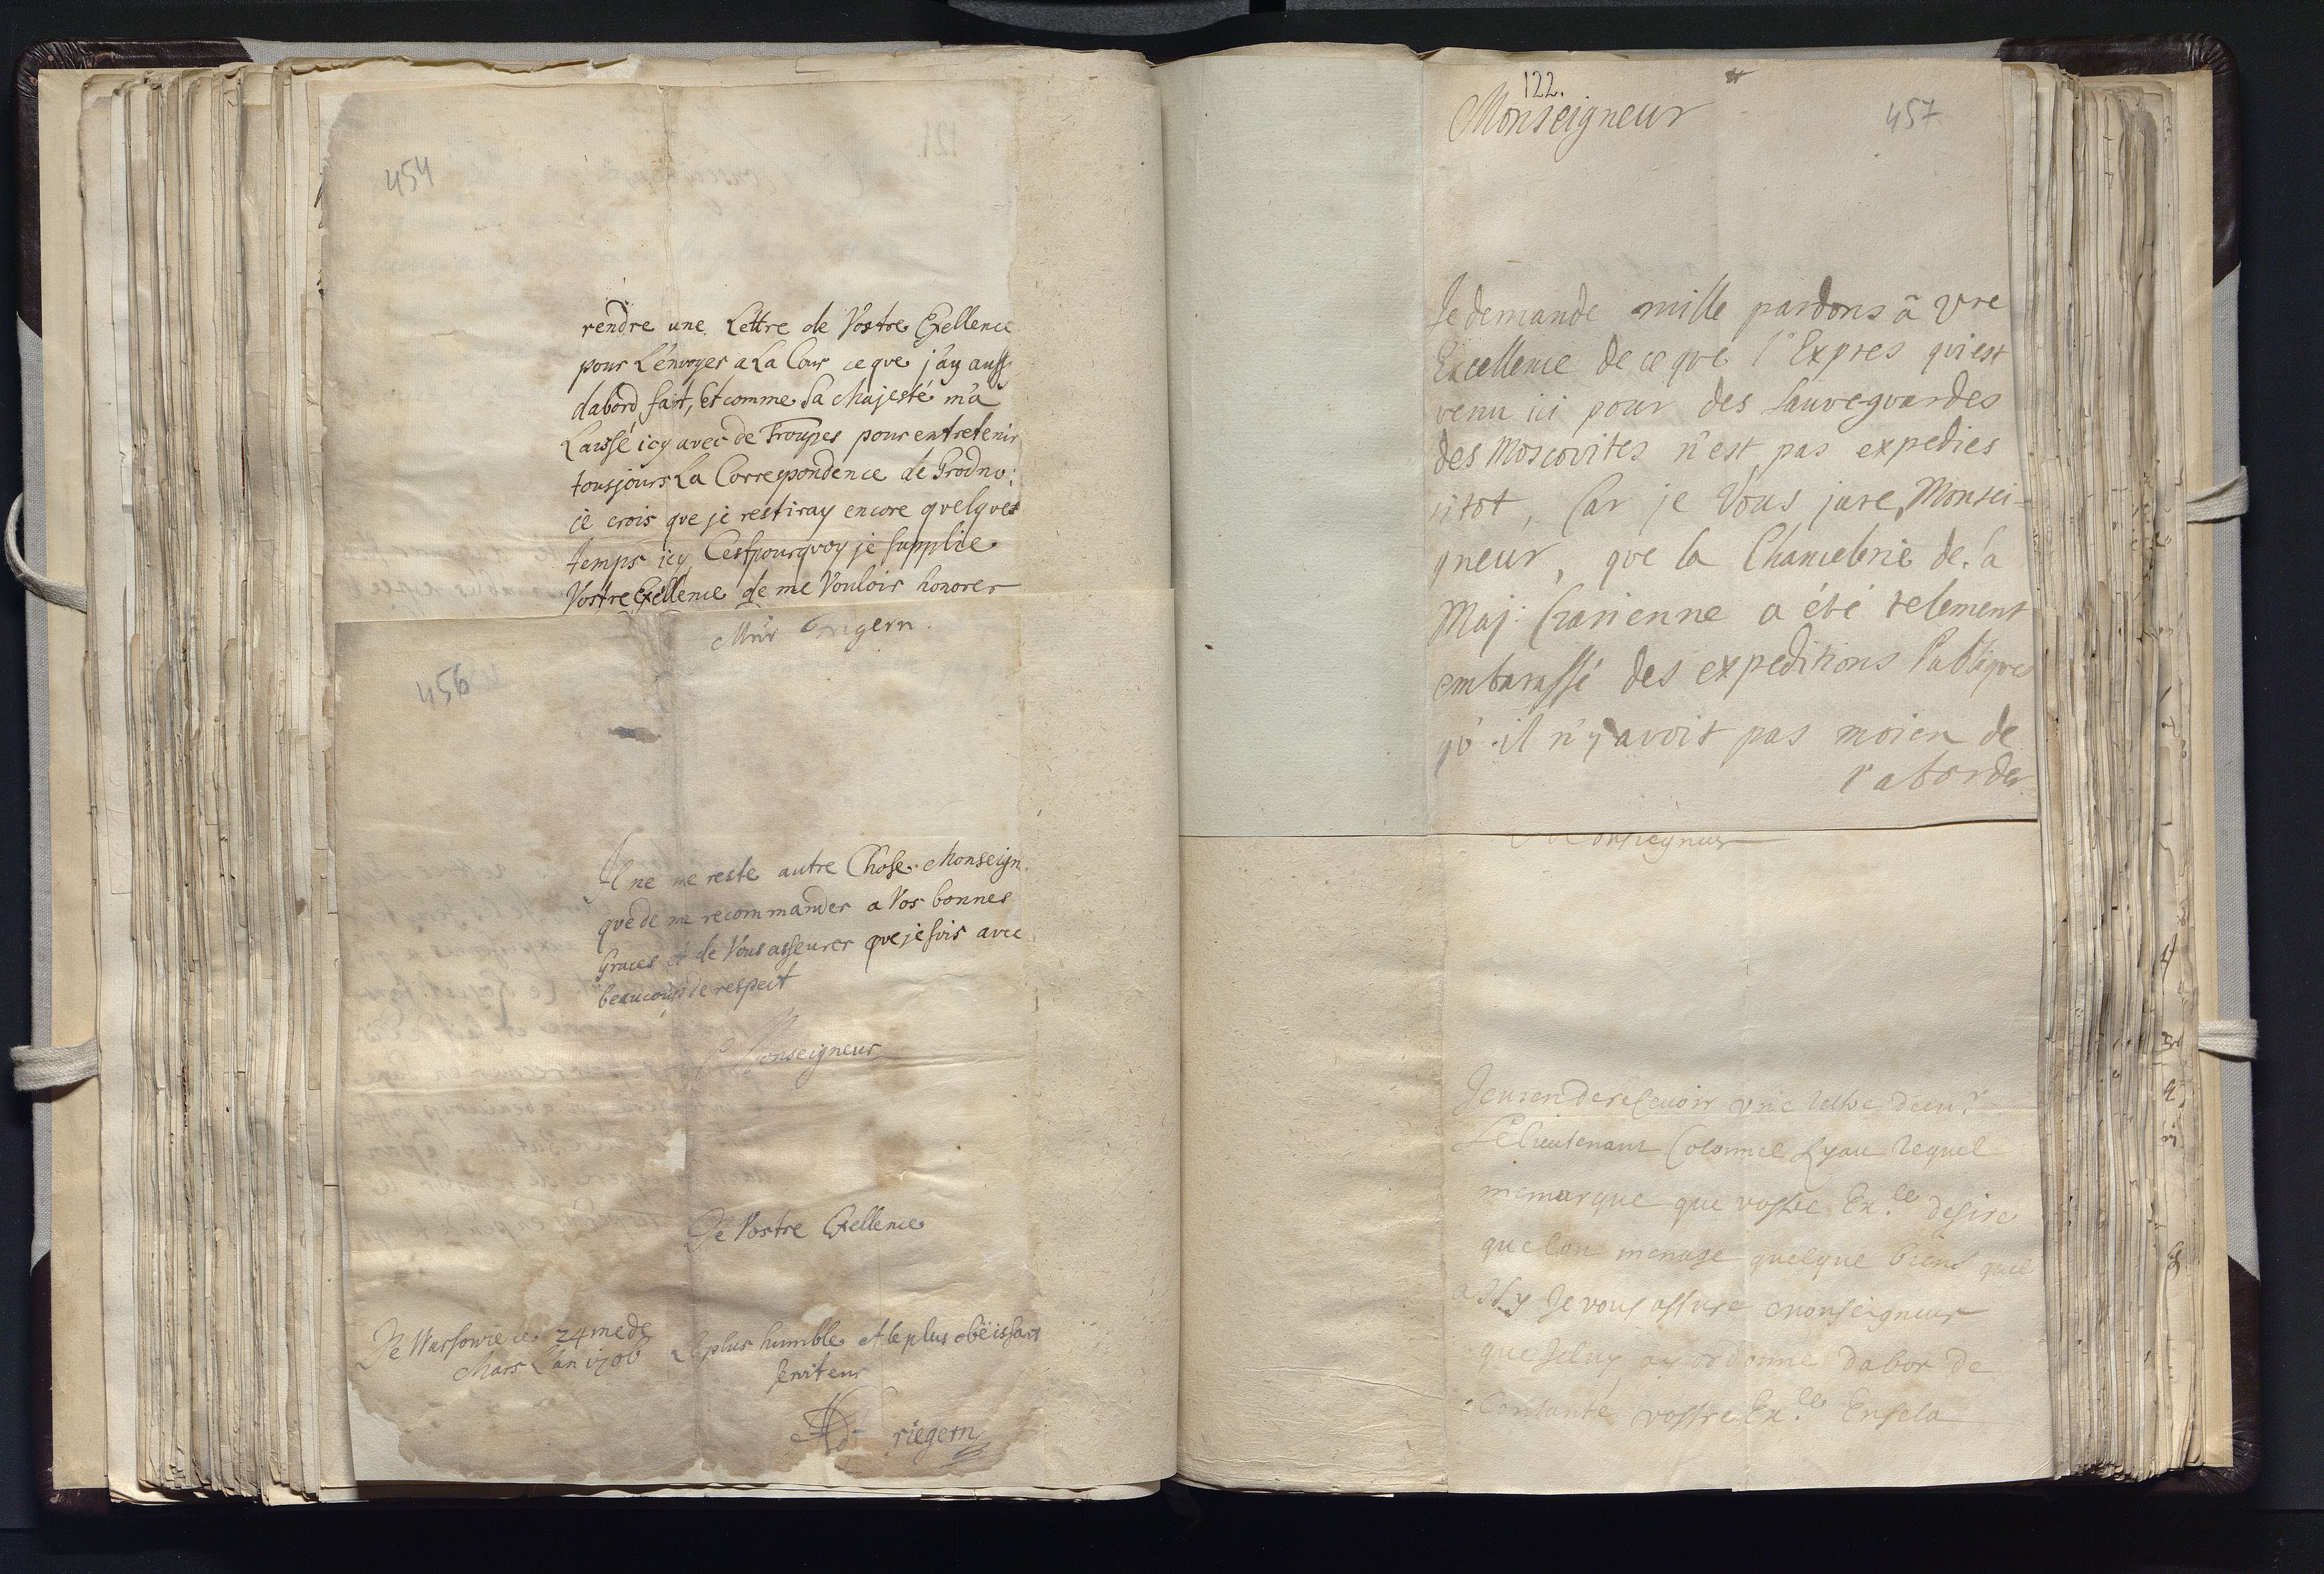 454
rendre une Lettre de Vostre Exellence
pour L'énvoyer a La Cour ce que j'ay aussi
dabord fait, Et comme Sa Majesté m'a
Laissé icy avec de Troupes pour entretenir
tousjours La Correspondence de Grodno:
je crois que je restiray encore quelques
temps icy Cestpourquoy je supplie
Vostre Exellence de me Vouloir honorer
456
Il ne me reste autre Chose Monseign.
que de me recommander a Vos bonnes
Graces et de Vous asseurer que je suis avec
beaucoup de respect
Monseigneur
De Vostre Exellence
De Warsowie ce 24me de
Mars L'an 1706
Le plus humble et le plus obëissant
Serviteur
riegern
122.
457
Monseigneur
Je demande mille pardons â vre
Excellence de ce que l'Expres qui est
venu ici pour des Sauvegvardes
des Moscovites n'est pas expedies
sitot, Car je Vous jure, Monsei-
gneur, que la Chancelerie de Sa
Maj: Czarienne a été telement
embarassé des expeditions Publiques
qu'il n'y avoit pas moien de
l'aborder
Monseigneur
Je vien de resevoir vne lettre de
Le lieutenant Colonnel Lyau lequel
me marque que vostre Ex.le desire
que lon menage quelque biens quil
a Issy Je vous assure monseigneur
que Je luy ay ordonné dabor de
Contanté vostre Ex.le En sela